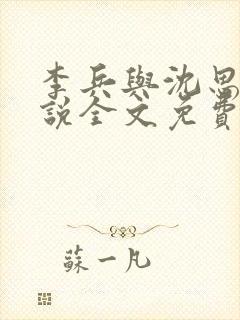 李兵與沈思
說全文免費
蘇一凡